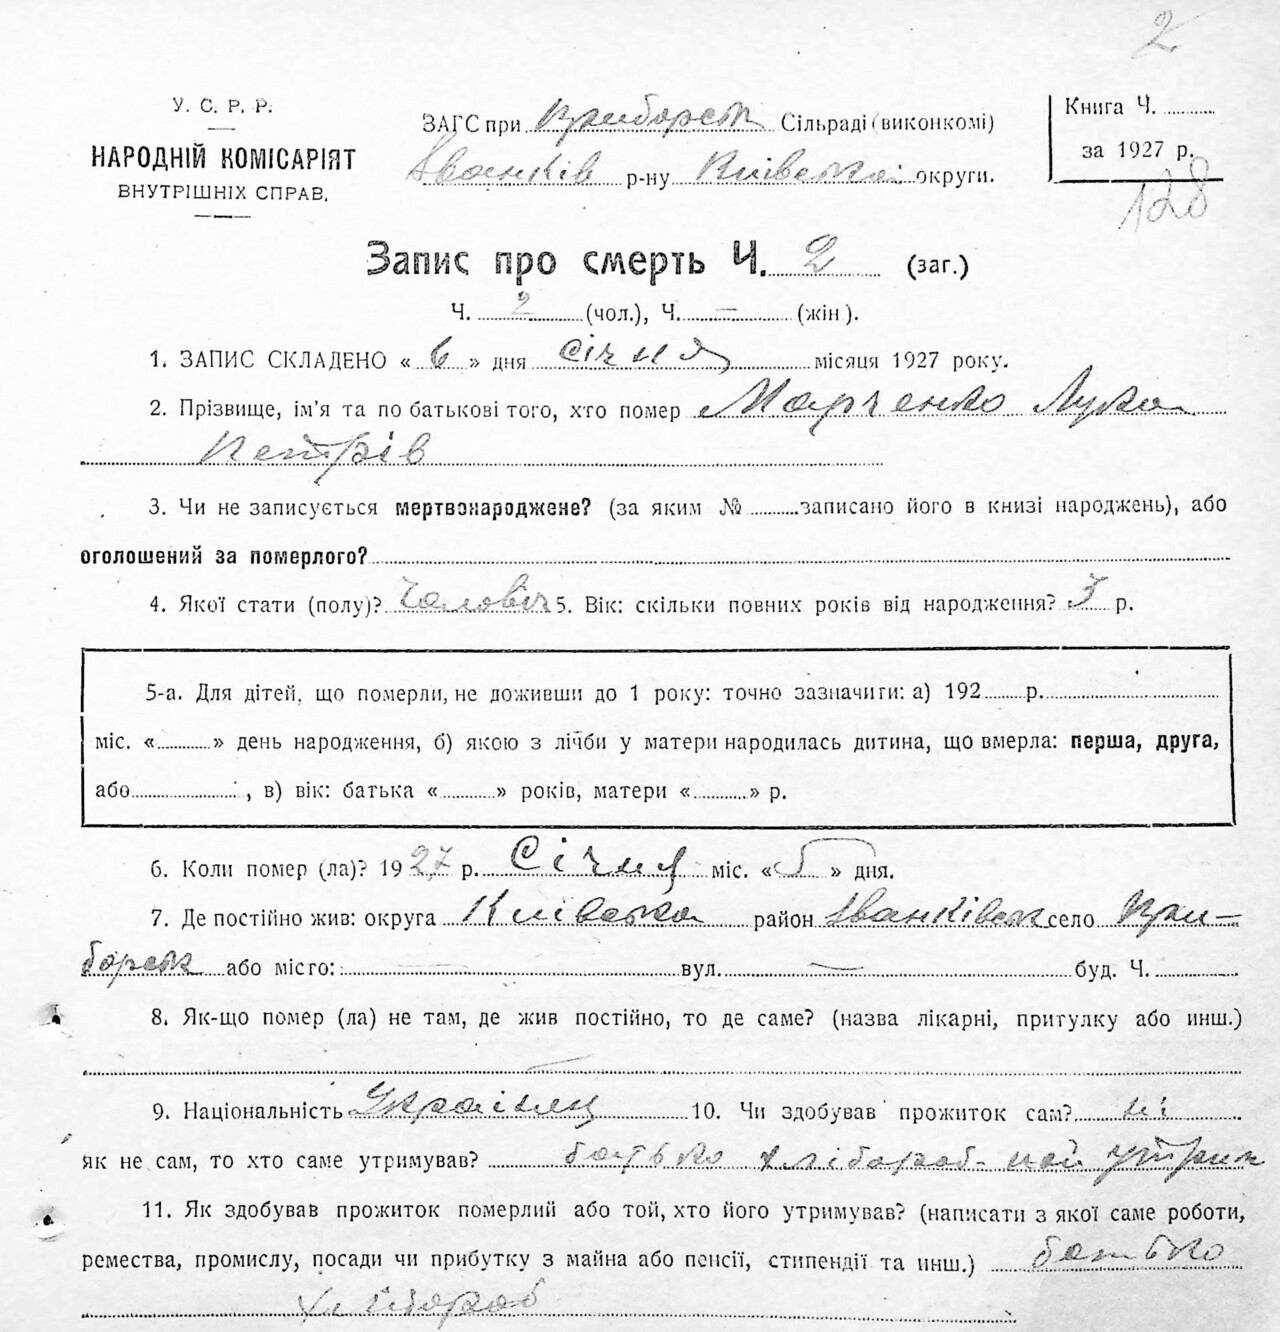 2
У. С. Р. Р.
НАРОДНІЙ КОМІСАРІЯТ
ВНУТРІШНІХ СПРАВ.
ЗАГС при Приборськ Сільраді (виконкомі)
Іванків р-ну Київської округи.
Книга Ч. ..........
за 1927 р.
128
Запис про смерть Ч. 2 (заг.)
Ч. 2 (чол.), Ч. — (жін).
1. ЗАПИС СКЛАДЕНО « 6 » дня Січня місяця 1927 року.
2. Прізвище, ім'я та по батькові того, хто помер Марченко Лука
Петрів
3. Чи не записується мертвонароджене? (за яким № ..........записано його в книзі народжень), або
оголошений за померлого?
4. Якої стати (полу)? Чоловіч 5. Вік: скільки повних років від народження? 3 р.
5-а. Для дітей, що померли, не доживши до 1 року: точно зазначити: а) 192 ...... р.
міс. «...........» день народження, б) якою з лічби у матери народилась дитина, що вмерла: перша, друга,
або..................., в) вік: батька «...........» років, матери «...........» р.
6. Коли помер (ла)? 1927 р. Січня міс. « 5 » дня.
7. Де постійно жив: округа Київська район Іванківськ село При-
борськ або місто: — вул. — буд. Ч. ..........
8. Як-що помер (ла) не там, де жив постійно, то де саме? (назва лікарні, притулку або инш.)
—
9. Національність Українец 10. Чи здобував прожиток сам? ні
як не сам, то хто саме утримував? батько хлібороб-
11. Як здобував прожиток померлий або той, хто його утримував? (написати з якої саме роботи,
ремества, промислу, посади чи прибутку з майна або пенсії, стипендії та инш.) батько
хлібороб